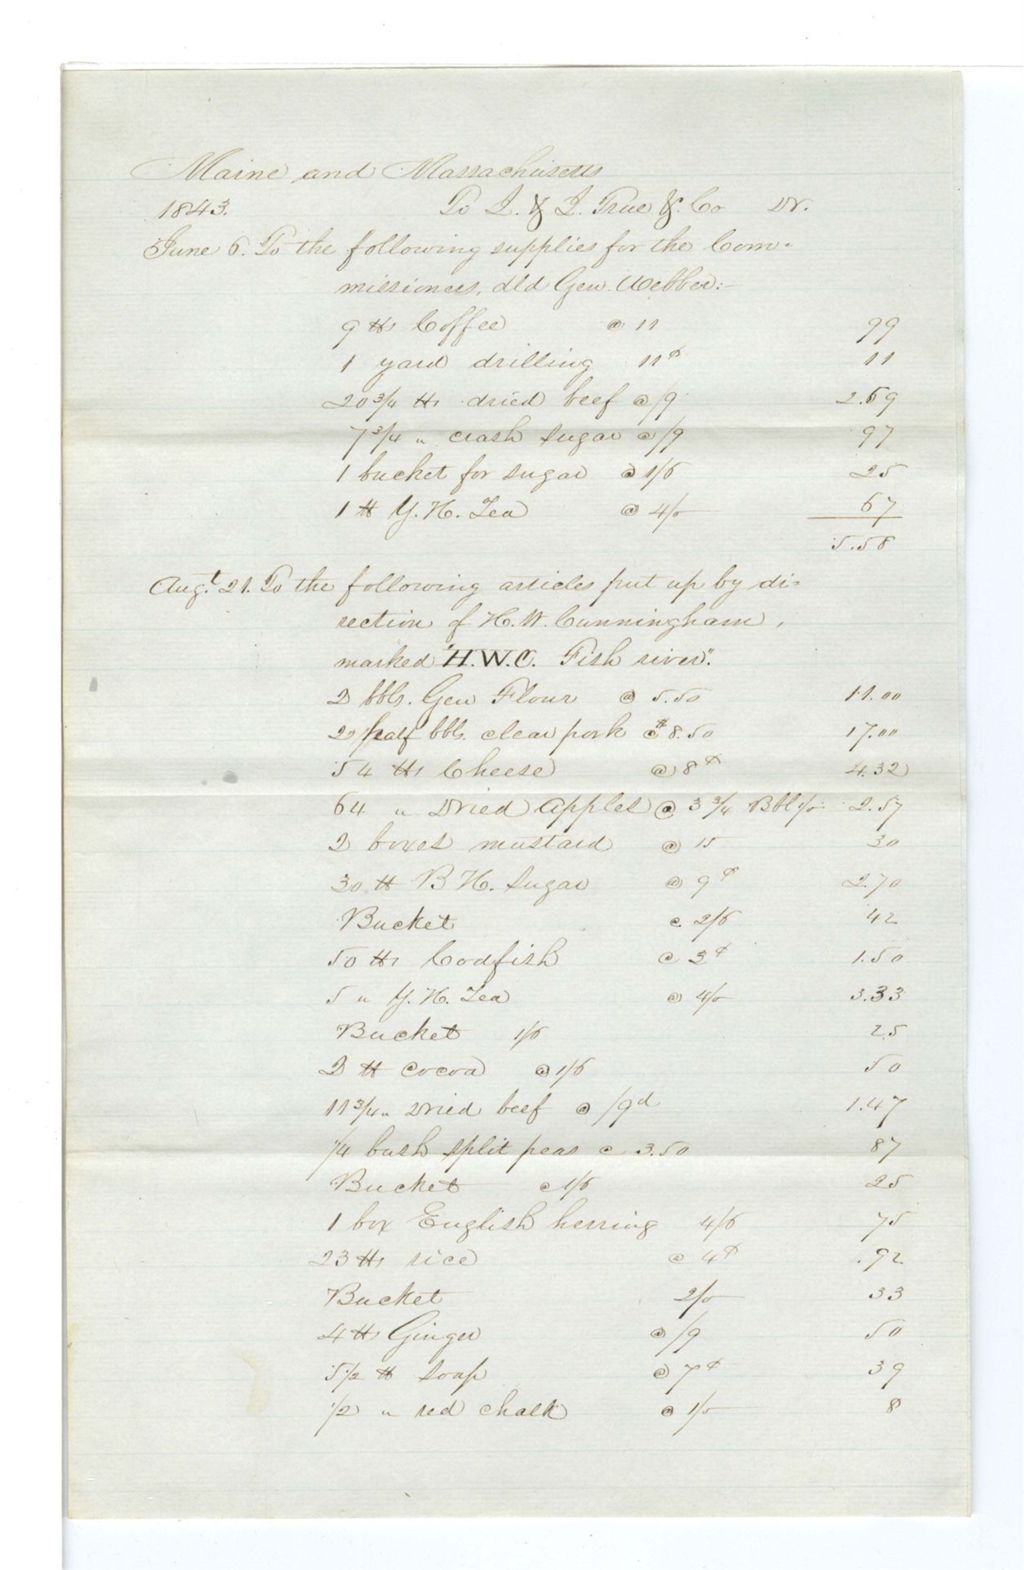 Maine and Massachusetts
1843. To J. & J. True & Co Dr.
June 6. To the following supplies for the Com-
missioners, dld Gen. Webber:-
9 ℔s Coffee @ 11 99
1 yard drilling 11¢ 11
20 3/4 ℔s dried beef @ /9 2.59
7 3/4 " crash sugar @ /9 97
1 bucket for sugar @ 1/6 25
1 ℔ Y. H. Tea @ 4/- 67
5.58
Augt. 21. To the following articles put up by di-
rection of H. W. Cunningham,
marked "H.W.C. Fish river".
2 bbls. Gen Flour @ 5.50 11.00
2 half bbls. clear pork @ $8.50 17.00
54 ℔s Cheese @ 8¢ 4.32
64 " Dried Apples @ 3 3/4 Bbl 1/- 2.57
2 boxes mustard @ 15 30
30 ℔ B. H. Sugar @ 9¢ 2.70
Bucket @ 2/6 42
50 ℔s Codfish @ 3¢ 1.50
5 " Y. H. Tea @ 4/- 3.33
Bucket 1/6 25
2 ℔ Cocoa @ 1/6 50
11 3/4 " Dried beef @ /9d 1.47
1/4 bush split peas @ 3.50 87
Bucket @ 1/6 25
1 box English herring 4/6 75
23 ℔s rice @ 4¢ .92
Bucket 2/- 33
4 ℔s Ginger @ /9 50
5 1/2 ℔ Soap @ 7¢ 39
1/2 " red chalk @ 1/- 8